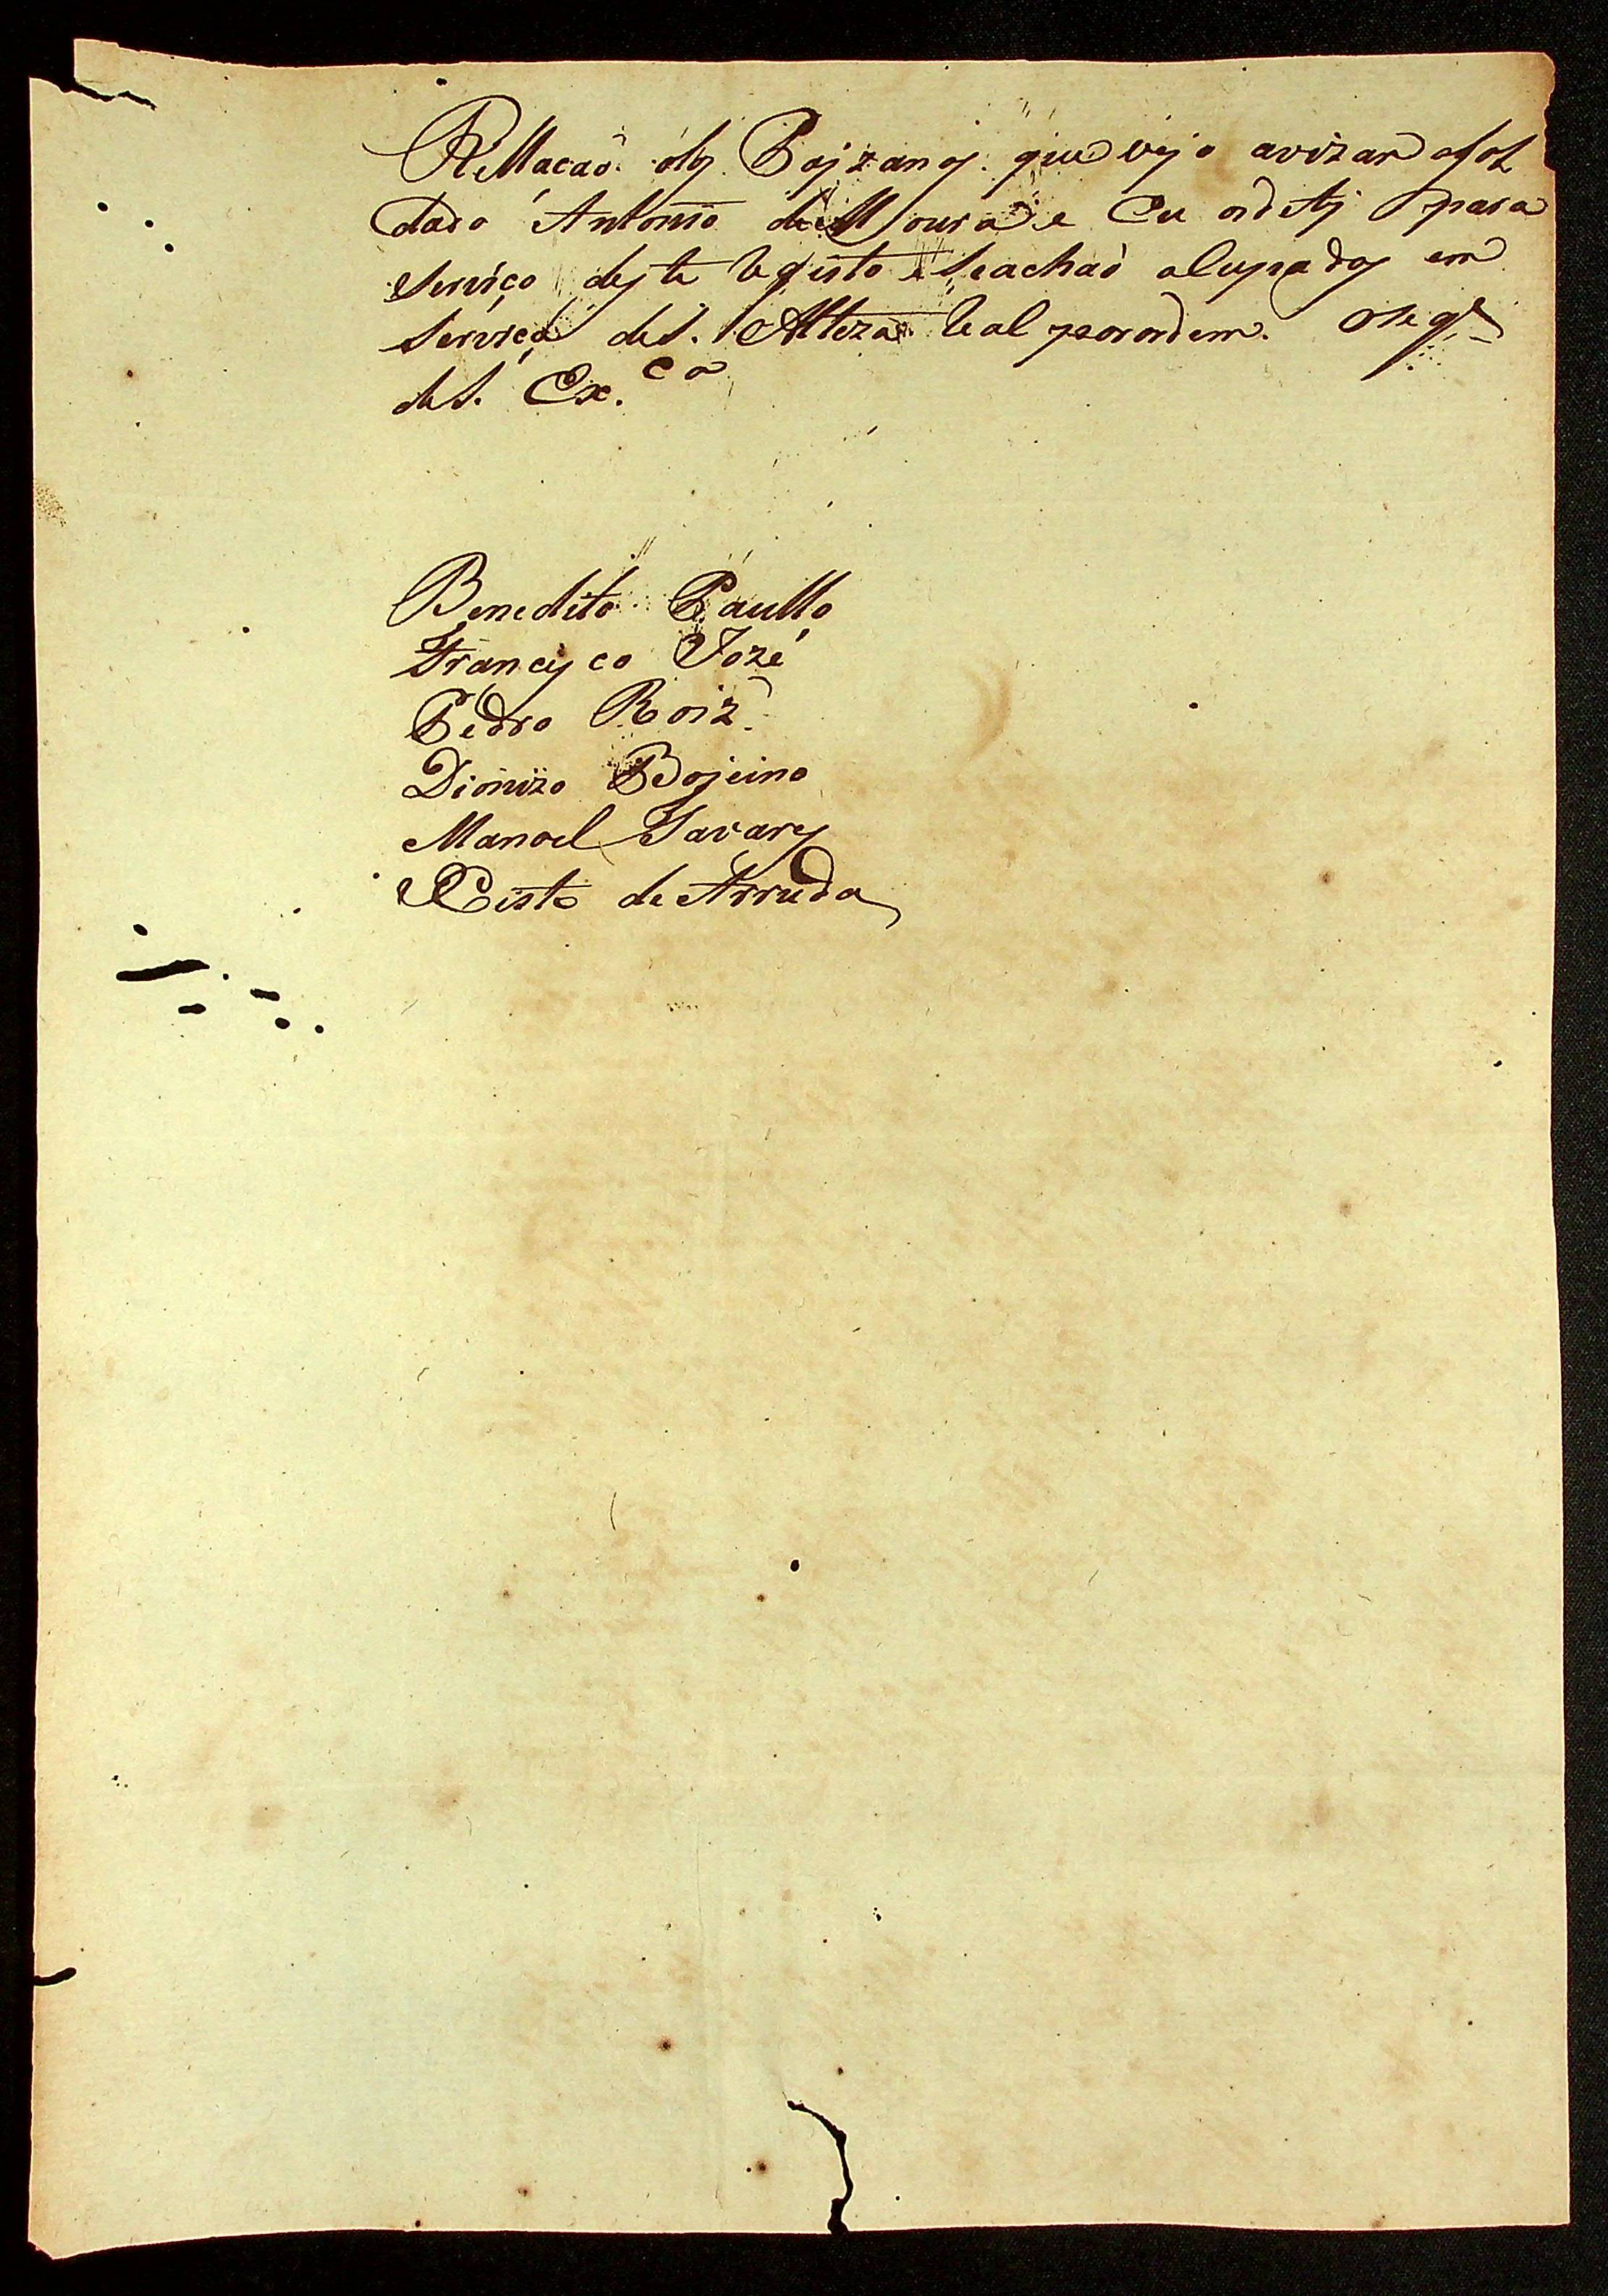 Rellacaõ dos Pajzanos que vejo avizar o Sol
dado Antonio de Moura e Eu os detej para
Serviço deste Registo e Seachaõ alupados em
Serviço de S. Alteza Real por ordem.
de S. Ex.ca
Benedito Paullo
Francisco Jozé
Pedro Roiz
Dionizo Bojeino
Manoel Tavares
Cisto de Arruda